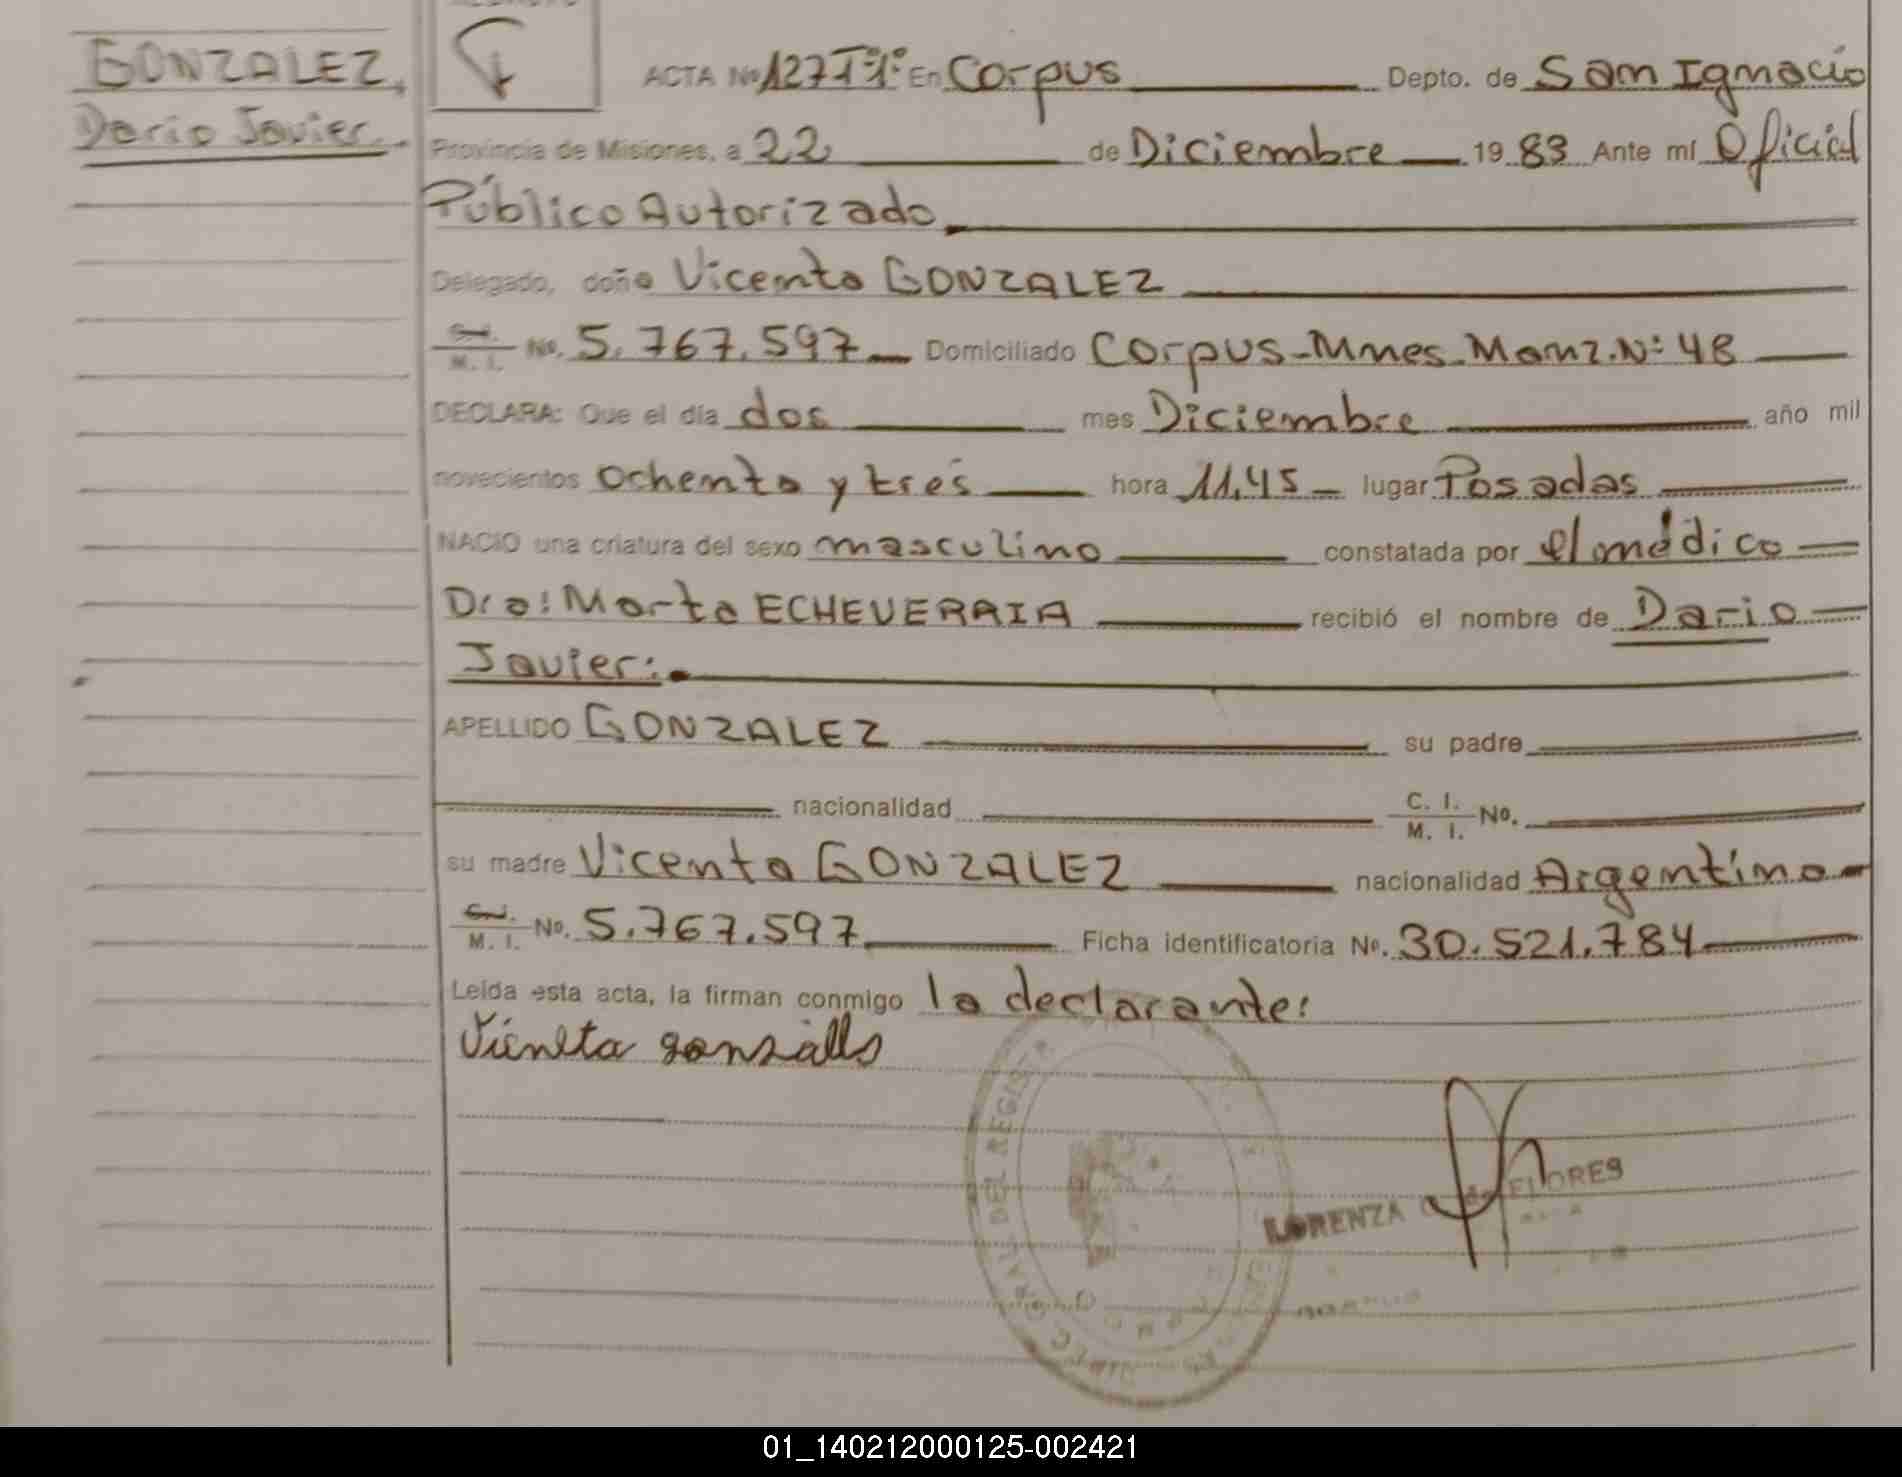 GONZALEZ,
Dario Javier.
ACTA No 127 Tº1º En Corpus Depto. de San Ignacio
Provincia de Misiones, a 22 de Diciembre 19 83 Ante mí Oficial
Público Autorizado
Delegado, doña Vicenta GONZALEZ
M. I. No. 5.767.597 Domiciliado Corpus-Mnes-Manz.Nº 48
DECLARA: Que el día dos mes Diciembre año mil
novecientos Ochenta y tres hora 11,45 lugar Posadas
NACIO una criatura del sexo masculino constatada por el médico
Dra: Marta ECHEVERRIA recibió el nombre de Dario
Javier:
APELLIDO GONZALEZ su padre
nacionalidad C. I. M. I. No.
su madre Vicenta GONZALEZ nacionalidad Argentina
M. I. No. 5.767.597 Ficha identificatoria No. 30.521.784
Leída esta acta, la firman conmigo la declarante:
DEL REGIST
LORENZA de FLORES
01_140212000125-002421